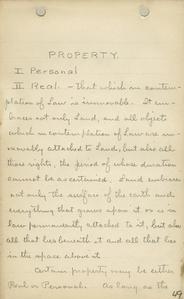 PROPERTY.
I Personal
II Real. - that which in contem-
plation of Law is immovable. It em-
braces not only Land, and all objects
which in contemplation of Law are im-
movably attached to Lands, but also all
those rights, the period of whose duration
cannot be ascertained. Land embraces
not only the surface of the earth and
everything that grows upon it or is in
law permanently attached to it, but also
all that lies beneath it and all that lies
in the space above it.
Certain property may be either
Real or Personal. As long as the
49